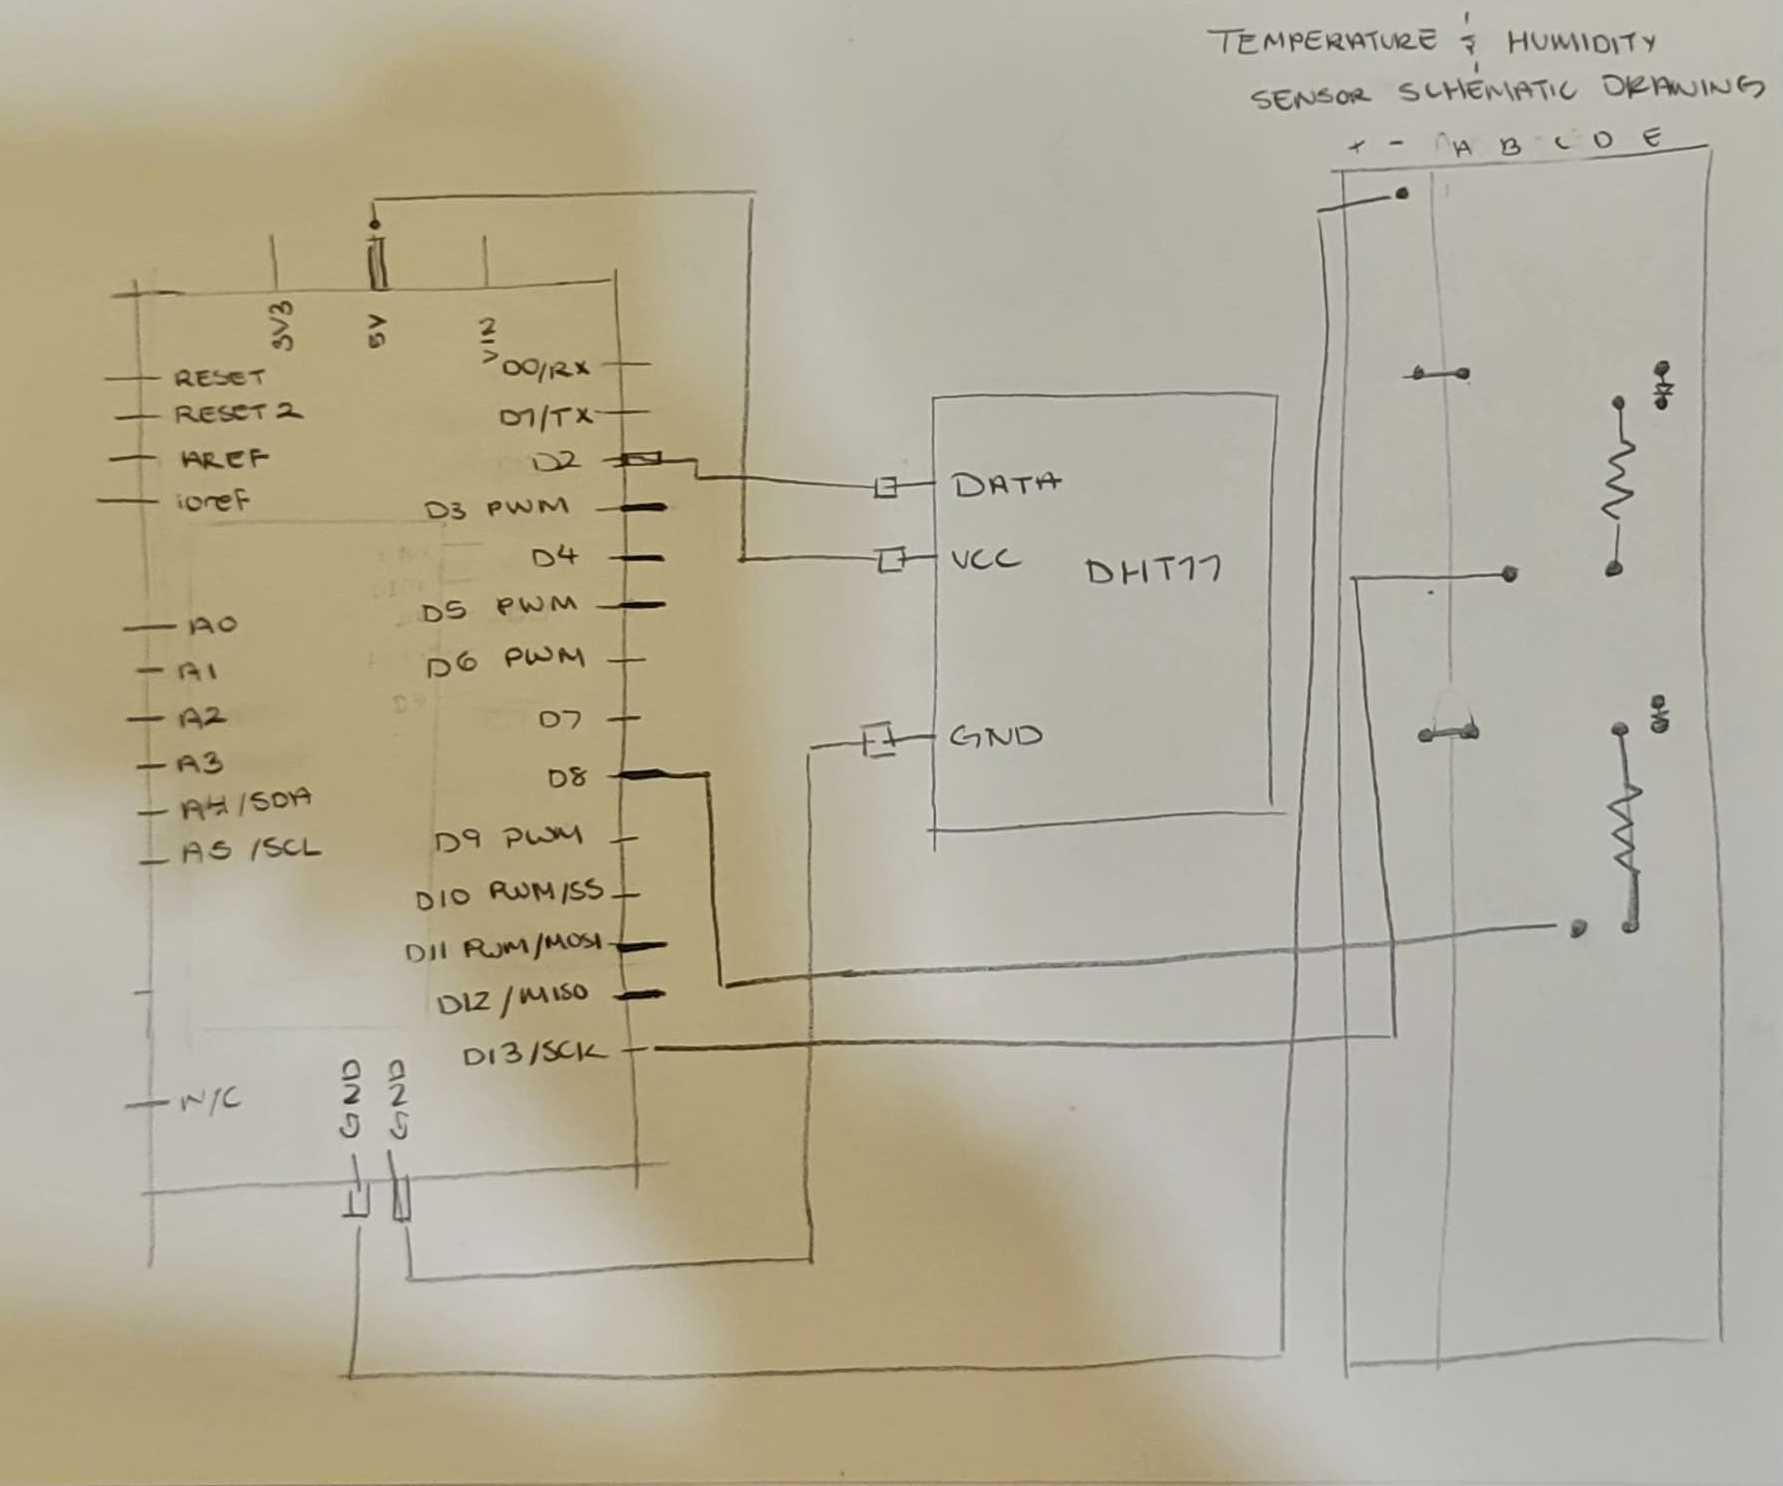 TEMPERATURE & HUMIDITY
SENSOR SCHEMATIC DRAWING
+ - A B C D E
3V3
5V
VIN
RESET
RESET 2
AREF
ioref
A0
A1
A2
A3
A4/SDA
A5/SCL
N/C
D0/RX
D1/TX
D2
D3 PWM
D4
D5 PWM
D6 PWM
D7
D8
D9 PWM
D10 PWM/SS
D11 PWM/MOSI
D12/MISO
D13/SCK
GND
GND
DATA
VCC
DHT11
GND